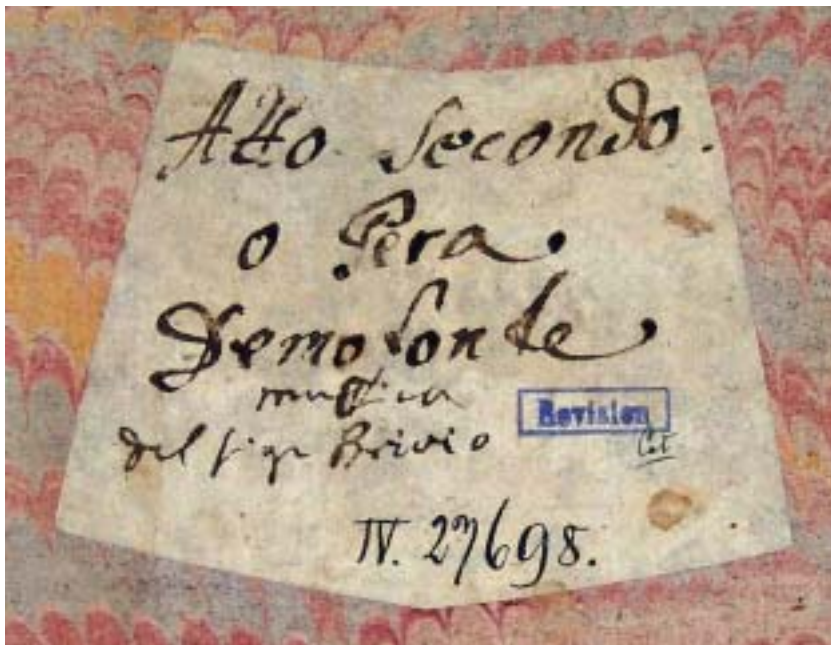 Atto Secondo.
o Pera.
Demofonte
musica
del sigr Brivio
Revision
Cat
IV. 27698.